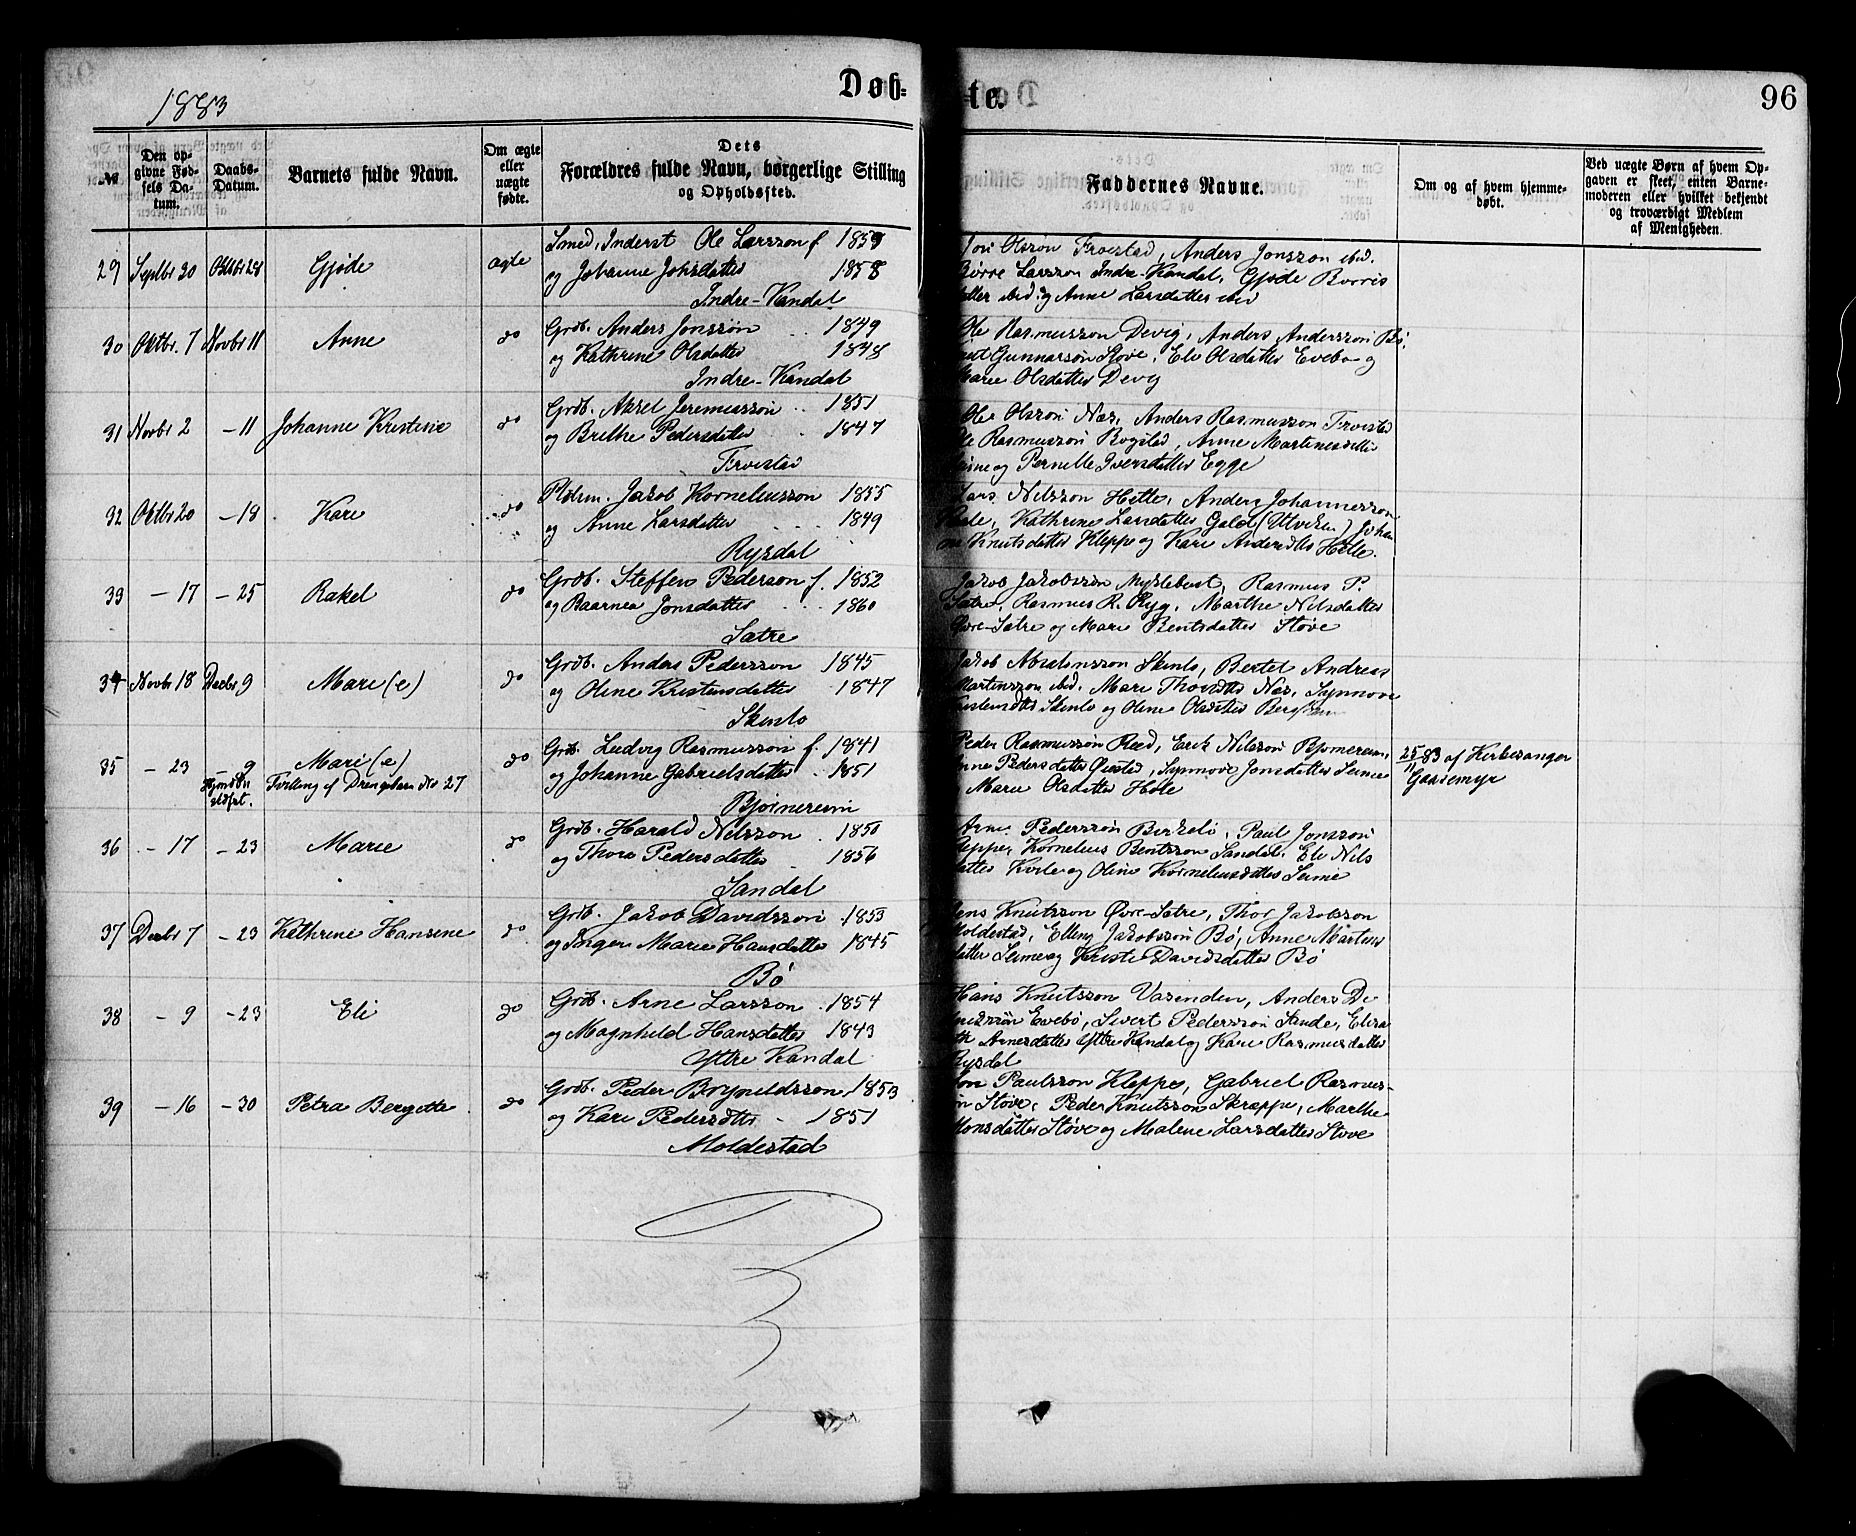 1883
Døb=
te.
96
№
Den op-
givne Fød-
sels Da-
tum.
Daabs-
Datum.
Barnets fulde Navn.
Om ægte
eller
uægte
fødte.
Dets
Forældres fulde Navn, borgerlige Stilling
og Opholdssted.
Faddernes Navne.
Om og af hvem hjemme-
døbt.
Ved uægte Børn af hvem Op-
gaven er skeet, enten Barne-
moderen eller hvilket bekjendt
og troværdigt Medlem
af Menigheden.
29 Septbr 30 Oktbr 28 Gjøde ægte
Smed, Inderst Ole Larsson f. 1859
og Johanne Johsdatter 1858
Indre-Kandal
Jon Olsson Froestad, Anders Jonsson ibid.
Børre Larsson Indre-Kandal, Gjøde Borris
datter ibid. og Anne Larsdatter ibid
30 Oktbr. 7 Novbr 11 Anne do
Grdb. Anders Jonssøn 1849
og Kathrine Olsdatter 1848
Indre-Kandal
Ole Rasmusson Devig, Anders Anderssøn Bø,
Gunnarsøn Støve, Eli Olsdatter Evebø og
Marie Olsdatter Devig
31 Novbr 2 - 11 Johanne Kristine do
Grdb. Aksel Jeremiassøn 1851
og Brithe Pedersdatter 1847
Froestad
Ole Olssøn Næs, Anders Rasmussøn Froestad
Ole Rasmussøn Bogstad, Anne Martinesdatter
og Pernille Iversdatter Egge
32 Oktbr 20 - 18 Kari do
Pldsm. Jakob Korneliusson 1855
og Anne Larsdatter 1849
Rysdal
Lars Nilsson Hetle, Anders Johannesson
Kathrine Larsdatter Gald (Utviken) Johan
ne Knutsdatter Kleppe og Kari Andersdtr Hetle.
33 - 17 - 25 Rakel do
Grdb. Steffen Pederson f. 1852
og Baarnea Jonsdatter 1860
Sætre
Jakob Jakobssøn Myklebust, Rasmus P.
Sætre, Rasmus R. Ryg, Marthe Nilsdatter
Øvre-Sætre og Mari Bentsdatter Støve
34 Novbr 18 Decbr 9 Mari(e) do
Grdb. Anders Pedersson 1845
og Oline Kristensdatter 1847
Skinlo
Jakob Absalonsson Skinlo, Bertel Andreas
Martinsson ibid. Mari Thorsdtr Næs, Synnove
Skinlo og Oline Olsdatter
35 - 23 - 9 Mari(e) do
Tvilling af Drengebarn No 27
Grdb. Ludvig Rasmussøn f. 1841
og Johanne Gabrielsdatter 1851
Bjørnereim
Peder Rasmussøn Reed, Erik Nilsson Bjørnereim,
Anne Pedersdatter Ørested, Synnove Jonsdatter Seime
Marie Olsdatter Hole
25/11 83 af Kirkesanger
Gaasemyr
36 - 17 - 23 Marie do
Grdb. Harald Nilsson 1850
og Thora Pedersdatter 1856
Sandal
Arne Pederssøn Birkelo, Paul Jonssøn
Kleppe, Kornelius Bentsson Sandal, Eli Nils
datter Kvile og Oline Korneliusdatter Seime
37 Decbr 7 - 23 Kathrine Hansine do
Grdb. Jakob Davidssøn 1853
og Inger Marie Hansdatter 1845
Bø
Jens Knutsson Øvre-Sætre, Thor Jakobsson
Moldestad, Elling Jakobsson Bø, Anne Martins
datter Seime og Kristi Davidsdatter Bø
38 - 9 - 23 Eli do
Grdb. Arne Larsson 1854
og Magnhild Hansdatter 1843
Yttre Kandal
Hans Knutsson Vasenden, Anders De
Evebø, Sivert Pedersson Sande, Elisa
beth Arnesdatter Yttre Kandal og Kari Rasmusdatter
Rysdal
39 - 16 - 30 Petra Bergette do
Grdb. Peder Brynildsson 1853
og Kari Pedersdtr - 1851
Moldestad
Jon Paulsson Kleppe, Gabriel Rasmus-
søn Støve, Peder Knutsson Skreppe, Marthe
Monsdatter Støve og Malene Larsdatter Støve